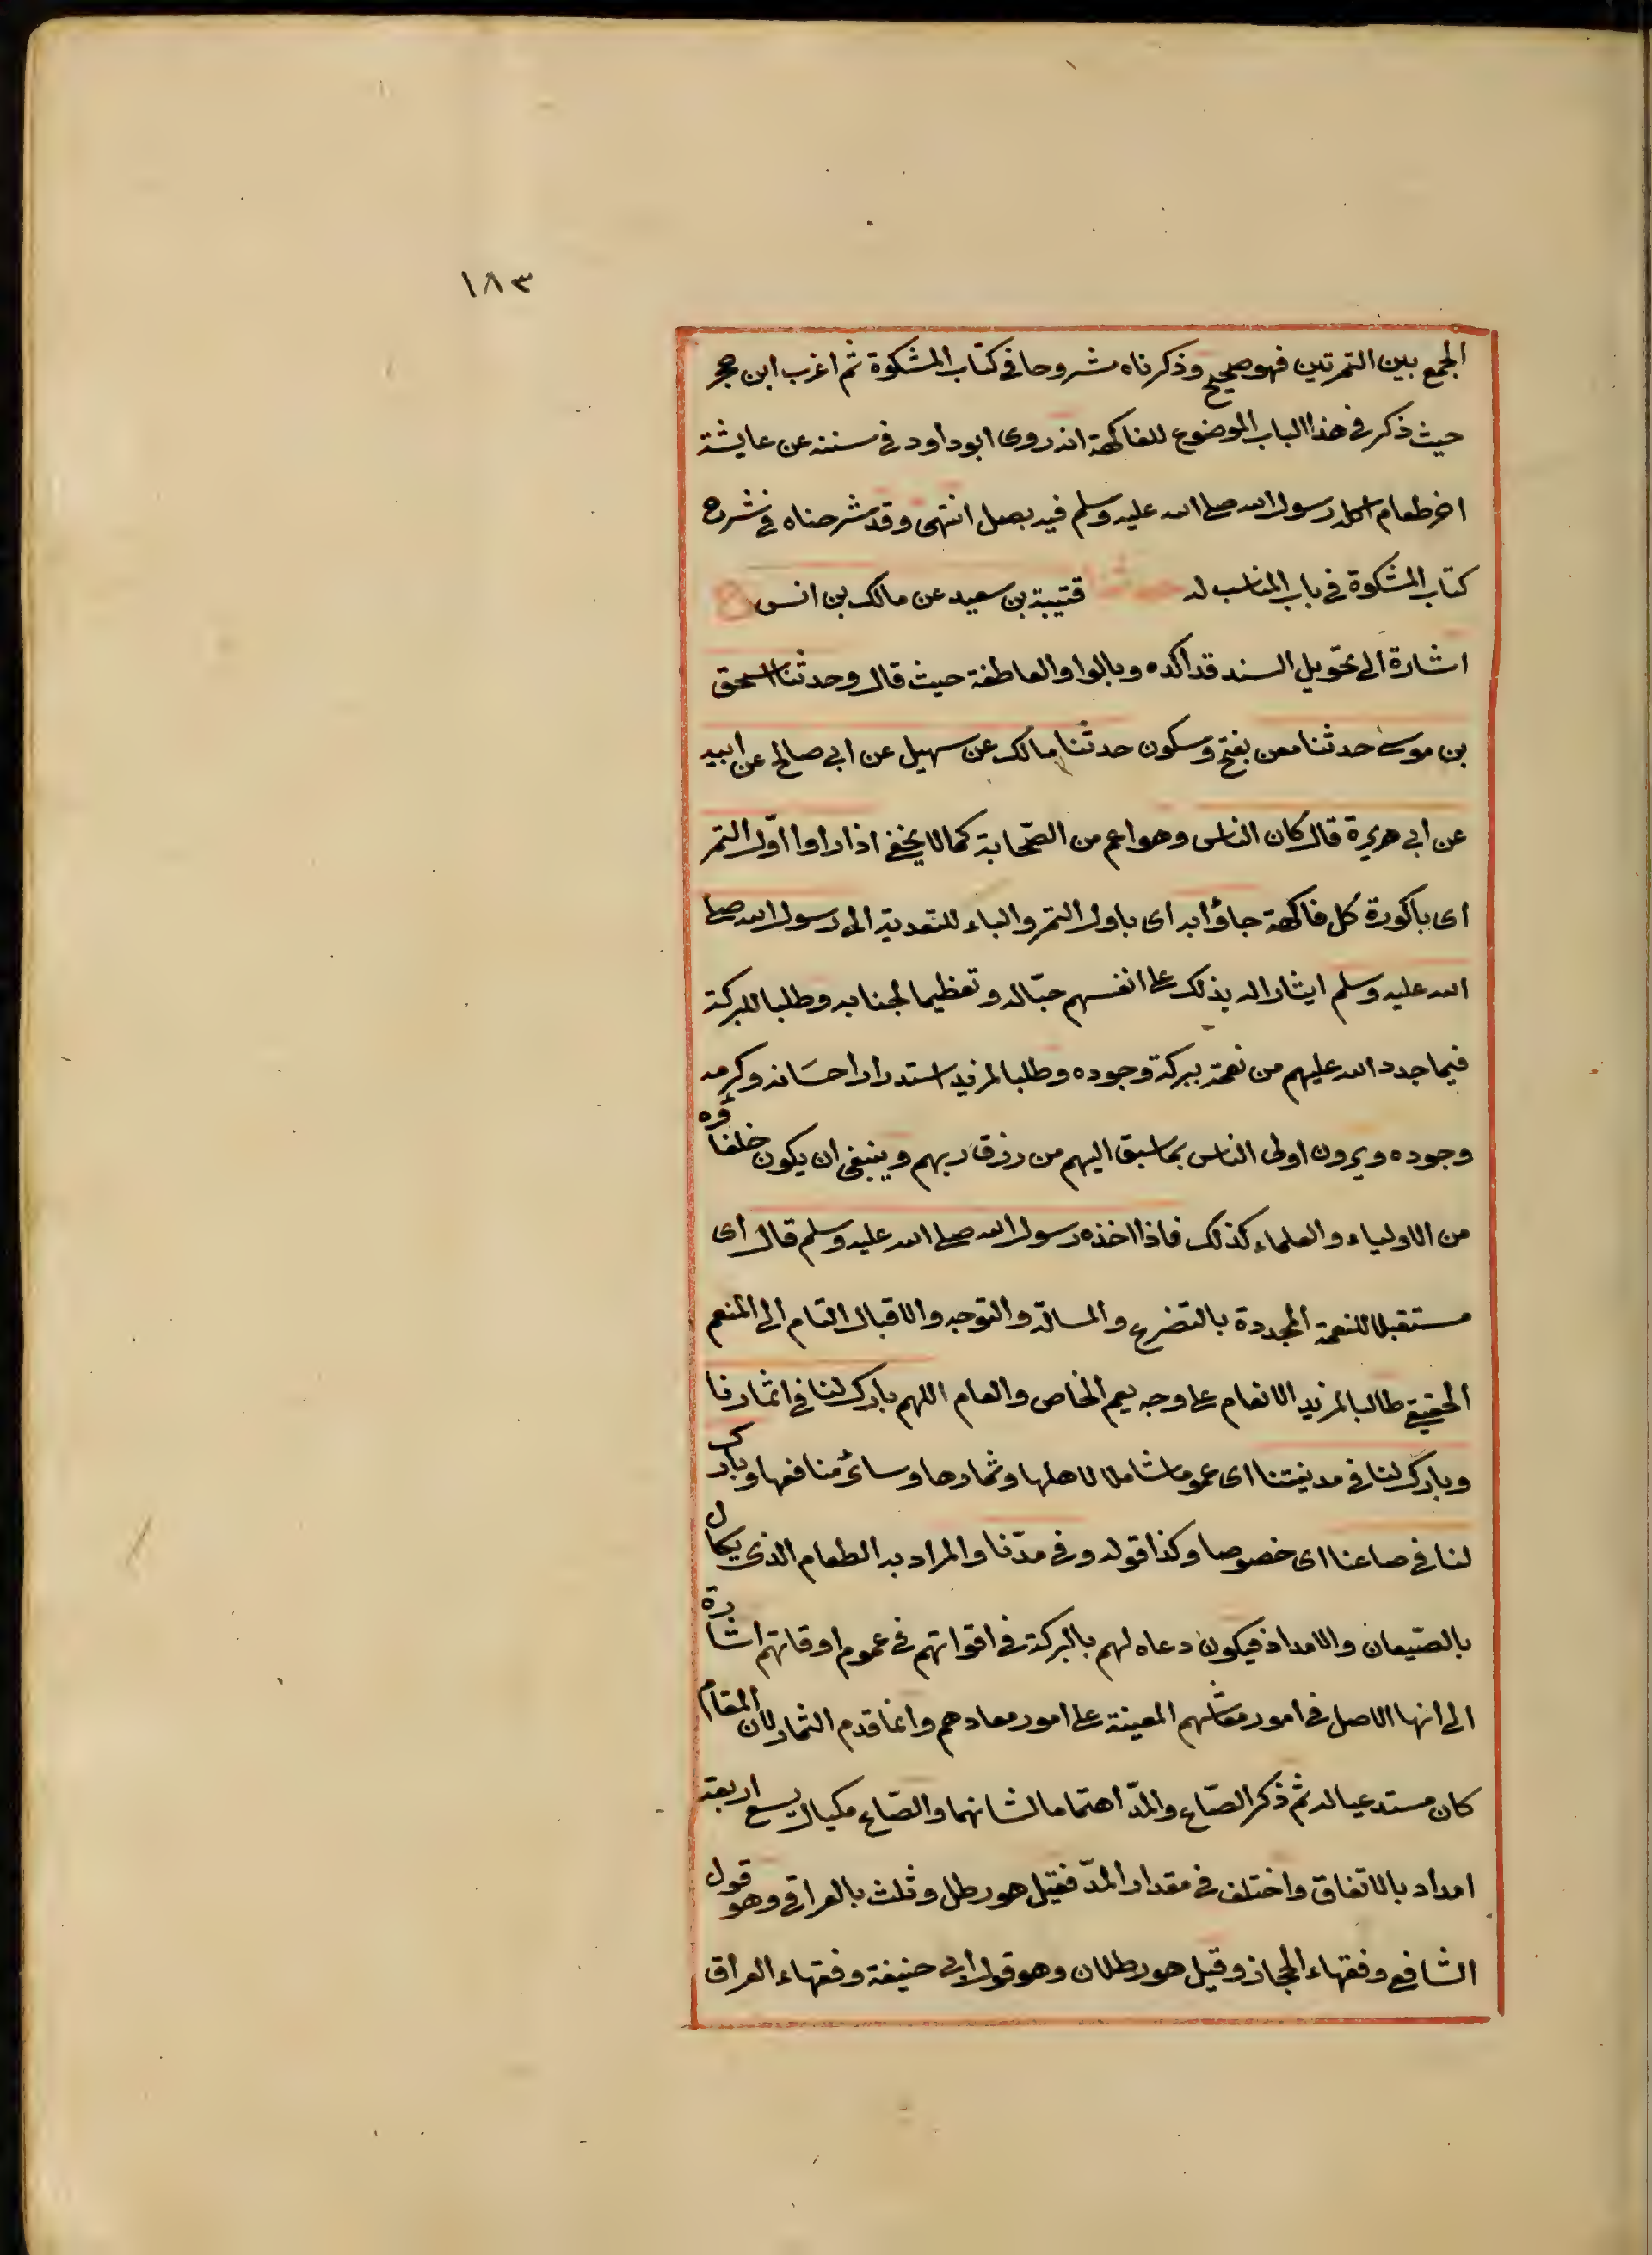 ١٨٣
الجمع بين التمرتين فهو صحيح وذكرناه مشروحا في كتاب المشكوة ثم اغرب ابن حجر
حيث ذكر في هذا الباب الموضوع للفاكهة انه روى ابو داود في سننه عن عايشة
اخر طعام اكله رسول الله صلى الله عليه وسلم فيه بصل انتهى وقد شرحناه في شرح
كتاب المشكوة في باب المناسب له حدثنا قتيبة بن سعيد عن مالك بن انس ح
اشارة الى تحويل السند قد اكده وبالواو العاطفة حيث قال وحدثنا اسحق
بن موسى حدثنا معن بفتح وسكون حدثنا مالك عن سهيل عن ابي صالح عن ابيه
عن ابي هريرة قال كان الناس وهو اعم من الصّحابة كما لا يخفى اذا راوا اوّل التمر
اى باكورة كل فاكهة جاؤا به اى باول التمر والباء للتعدية الى رسول الله صلى
الله عليه وسلم ايثارا له بذلك على انفسهم حبّا له وتعظيما لجنابه وطلبا للبركة
فيما جدد الله عليهم من نعمة ببركة وجوده وطلبا لمزيد استدرارا حسانه وكرمه
وجوده ويرون اولى الناس بما سبق اليهم من رزق ربهم وينبغى ان يكون خلفاؤه
من الاولياء والعلماء كذلك فاذا اخذه رسول الله صلى الله عليه وسلم قال اى
مستقبلا للنعمة المجددة بالتضرع والمسالة والتوجه والاقبال التام الى المنعم
الحقيقى طالبا لمزيد الانعام على وجه يعم الخاص والعام اللهم بارك لنا في اثمارنا
وبارك لنا في مدينتنا اى عموما شاملا لاهلها وثمارها وسائر منافعها وبارك
لنا في صاعنا اى خصوصا وكذا قوله وفي مدّنا والمراد به الطعام الذى يكال
بالصّيعان والامداد فيكون دعاه لهم بالبركة في اقواتهم في عموم اوقاتهم اشارة
الى انها الاصل في امور معاشهم المعينة على امور معادهم وانما قدم الثمار لان المقام
كان مستدعيا له ثم ذكر الصّاع والمدّ اهتماما لشانهما والصّاع مكيال يسع اربعة
امداد بالاتفاق واختلف في مقدار المدّ فقيل هو رطل وثلث بالعراقى وهو قول
الشافعى وفقهاء الحجاز وقيل هو رطلان وهو قول ابى حنيفة وفقهاء العراق